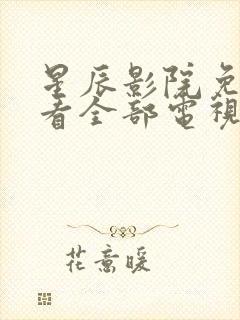 星辰影院免
看全部電視
花意暖